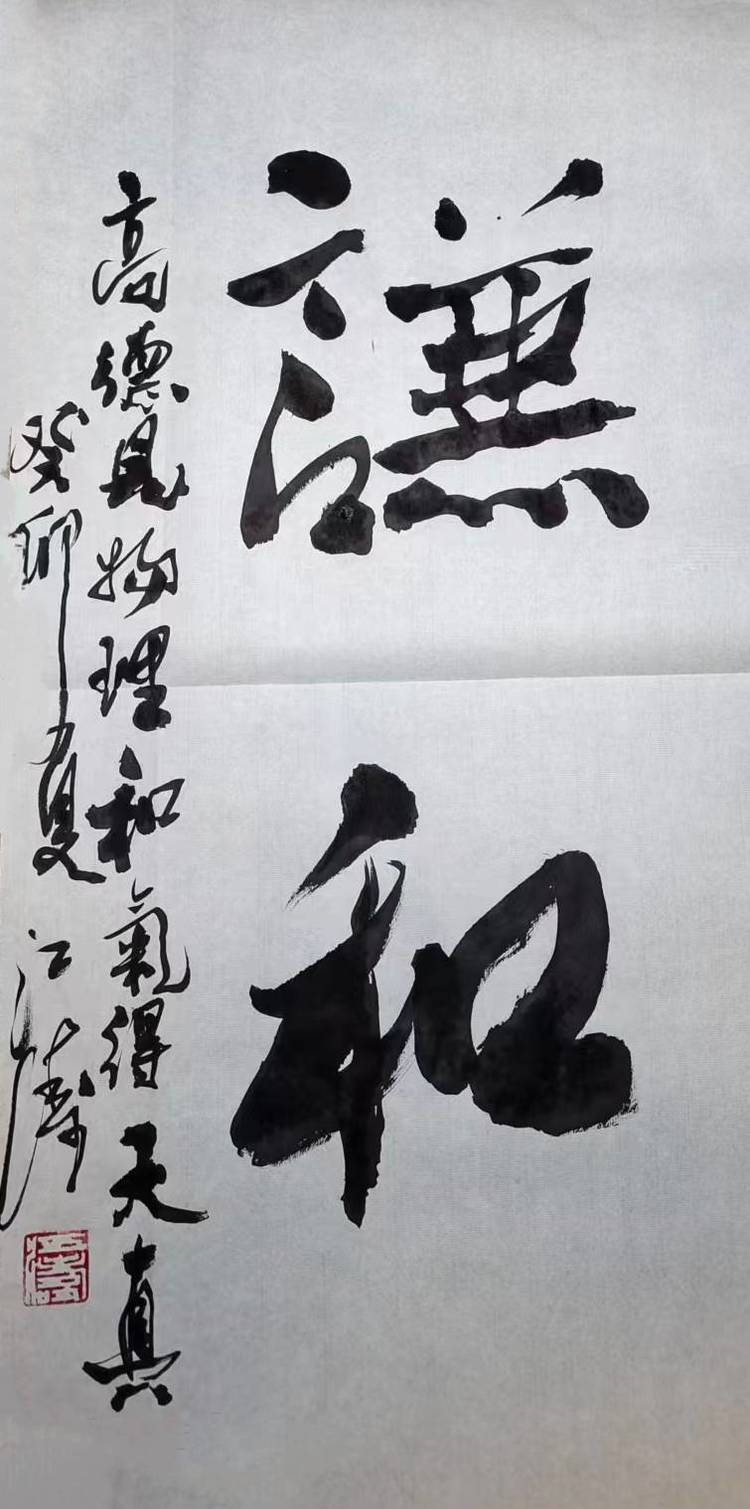 謙和
高德見物理和氣得天真
癸卯夏 江濤